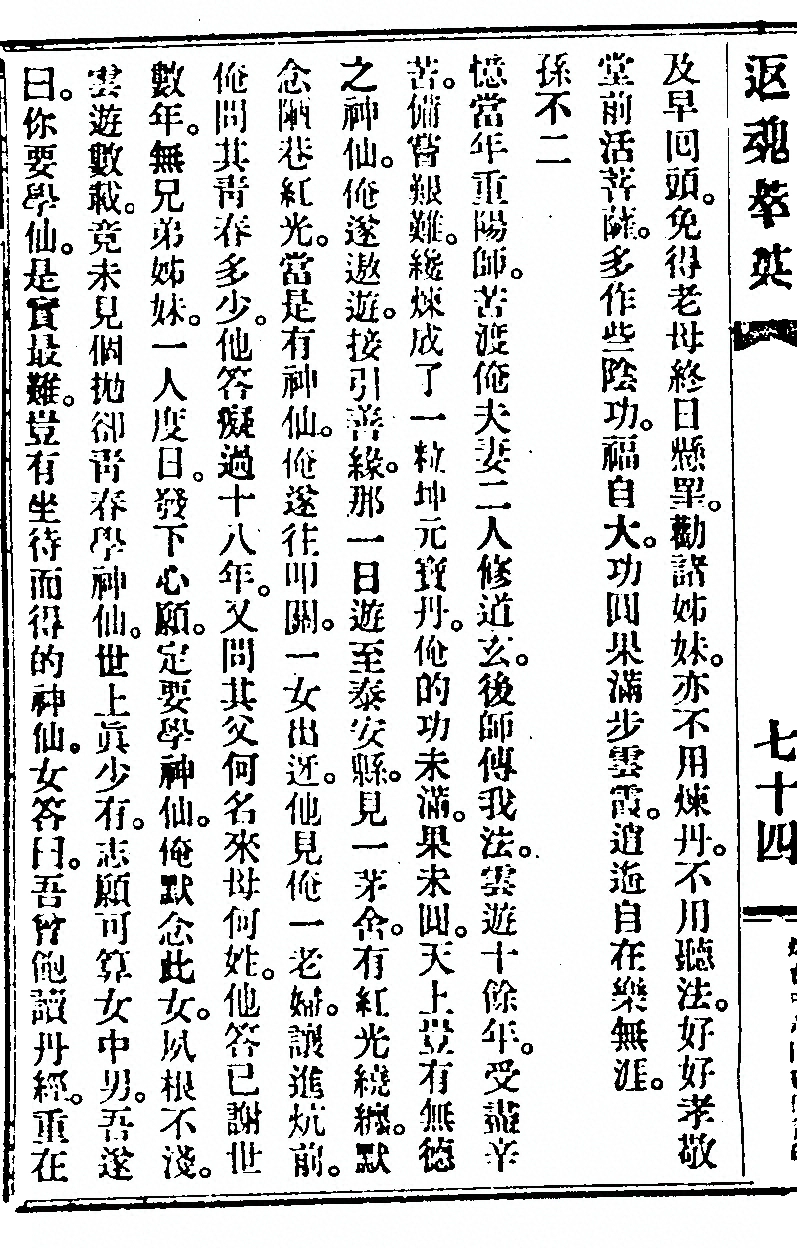 返魂夲英
七十四
及早囘頭。免得老母終日懸罣。勸諸姊妹。亦不用煉丹。不用聽法。好好孝敬
堂前活菩薩。多作些陰功。福自大。功圓果滿步雲霞。逍遙自在樂無涯。
孫不二
憶當年重陽師。苦渡俺夫妻二人修道玄。後師傳我法。雲遊十餘年。受盡辛
苦。備嘗艱難。纔煉成了一粒坤元寶丹。俺的功未滿。果未圓。天上豈有無德
之神仙。俺遂遨遊。接引善緣。那一日遊至泰安縣。見一茅舍。有紅光繞纏。默
念陋巷紅光。當是有神仙。俺遂往叩關。一女出迓。他見俺一老婦。讓進炕前。
俺問其靑春多少。他答癡過十八年。又問其父何名來母何姓。他答已謝世
數年。無兄弟姊妹。一人度日。發下心願。定要學神仙。俺默念此女。夙根不淺。
雲遊數載。竟未見個拋卻靑春學神仙。世上眞少有。志願可算女中男。吾遂
曰。你要學仙。是實最難。豈有坐待而得的神仙。女答曰。吾曾飽讀丹經。重在